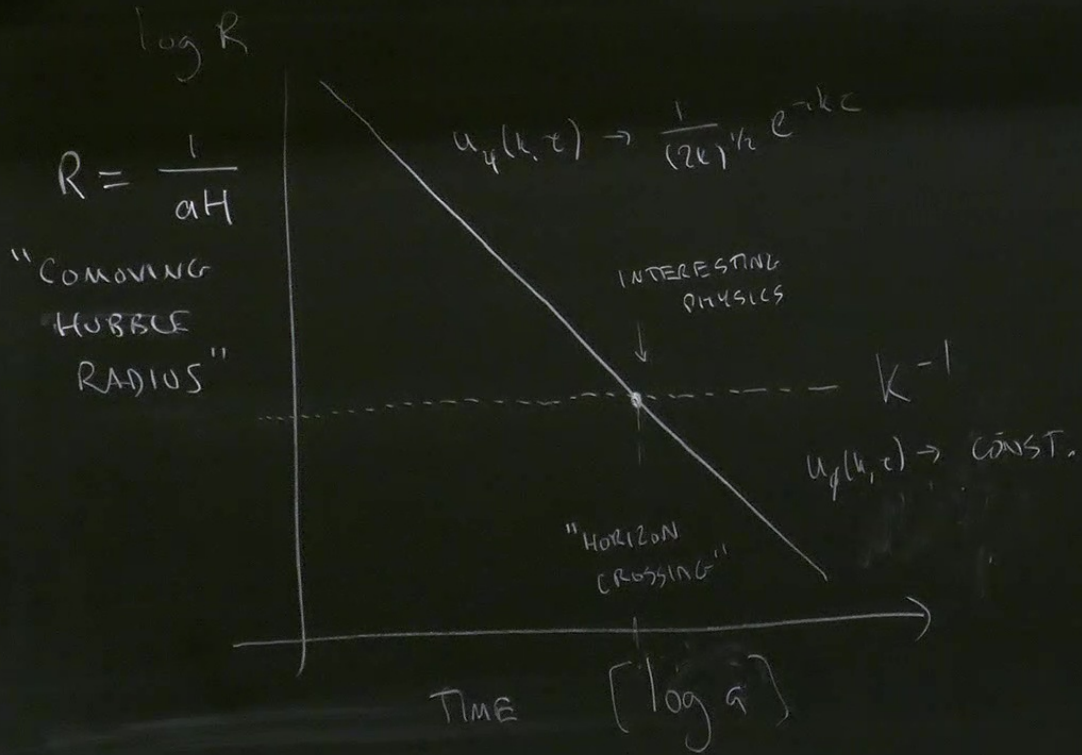 log R
R = 1/aH
"COMOVING
HUBBLE
RADIUS"
u_ψ(k, τ) → 1/(2k)^1/2 e^-ikτ
INTERESTING
PHYSICS
↓
k^-1
u_ϕ(k, τ) → CONST.
"HORIZON
CROSSING"
TIME [log a]